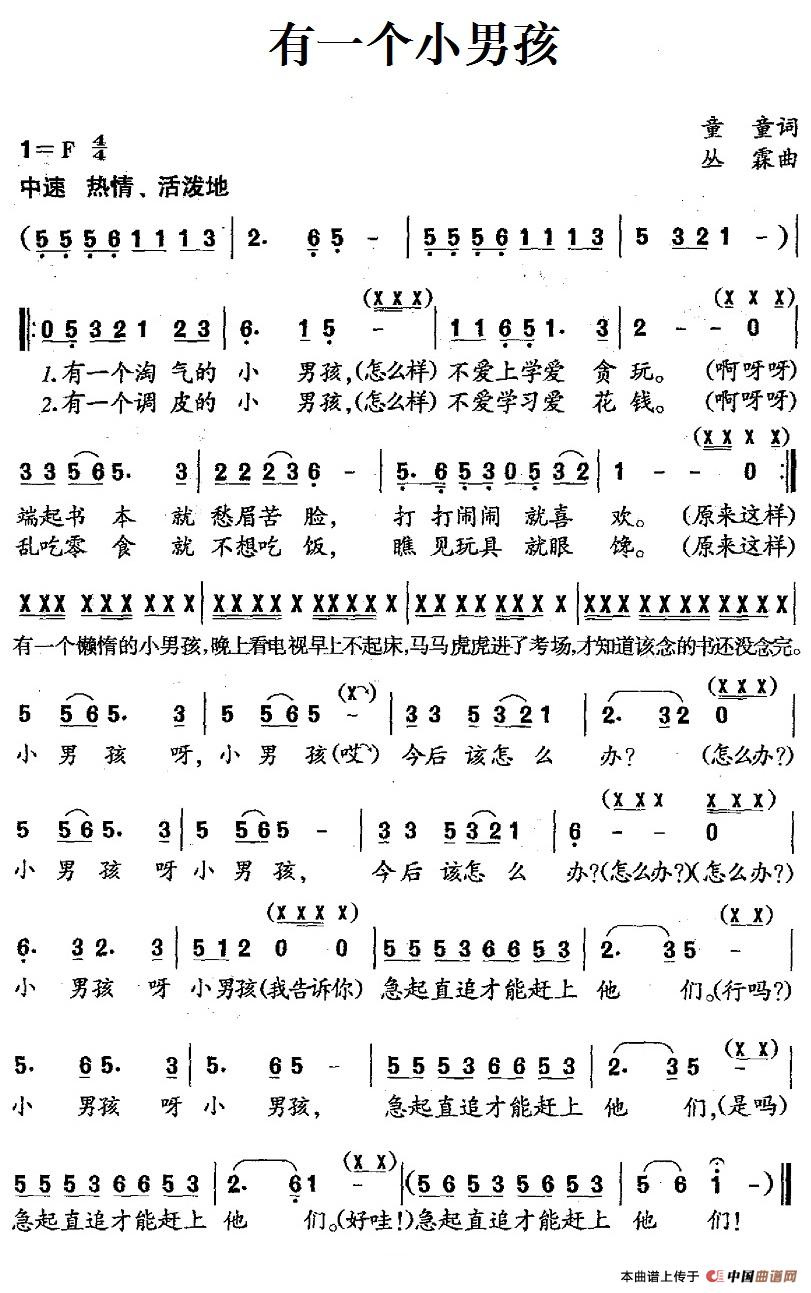 有一个小男孩
童 童词
1=F 4/4
丛 霖曲
中速 热情、活泼地
(5 5 5 6 1 1 1 3 | 2. 6 5 - | 5 5 5 6 1 1 1 3 | 5 3 2 1 -) |
(X X X) (X X X)
‖: 0 5 3 2 1 2 3 | 6. 1 5 - | 1 1 6 5 1. 3 | 2 - - 0 |
1.有一个淘 气的 小 男孩,(怎么样) 不爱上学爱 贪 玩。 (啊呀呀)
2.有一个调 皮的 小 男孩,(怎么样) 不爱学习爱 花 钱。 (啊呀呀)
(X X X X)
3 3 5 6 5. 3 | 2 2 2 3 6 - | 5. 6 5 3 0 5 3 2 | 1 - - 0 :‖
端起书 本 就 愁眉苦 脸, 打 打闹闹 就喜 欢。 (原来这样)
乱吃零 食 就 不想吃 饭, 瞧 见玩具 就眼 馋。 (原来这样)
X X X X X X X X X | X X X X X X X X X | X X X X X X X X | X X X X X X X X X X X |
有一个懒惰的小男孩,晚上看电视早上不起床,马马虎虎进了考场,才知道该念的书还没念完。
(X) (X X X)
5 5 6 5. 3 | 5 5 6 5 - | 3 3 5 3 2 1 | 2. 3 2 0 |
小 男 孩 呀, 小 男 孩(哎) 今后 该怎 么 办? (怎么办?)
(X X X X X X)
5 5 6 5. 3 | 5 5 6 5 - | 3 3 5 3 2 1 | 6 - - 0 |
小 男 孩 呀 小 男 孩, 今后 该怎 么 办?(怎么办?)(怎么办?)
(X X X X) (X X)
6. 3 2. 3 | 5 1 2 0 0 | 5 5 5 3 6 6 5 3 | 2. 3 5 - |
小 男孩 呀 小男孩(我告诉你) 急起直追才能赶上 他 们。(行吗?)
(X X)
5. 6 5. 3 | 5. 6 5 - | 5 5 5 3 6 6 5 3 | 2. 3 5 - |
小 男孩 呀 小 男孩, 急起直追才能赶上 他 们,(是吗)
(X X)
5 5 5 3 6 6 5 3 | 2. 6 1 - | (5 6 5 3 5 6 5 3 | 5 6 1 -) ‖
急起直追才能赶上 他 们。(好哇!)急起直追才能赶上 他 们!
本曲谱上传于 中国曲谱网